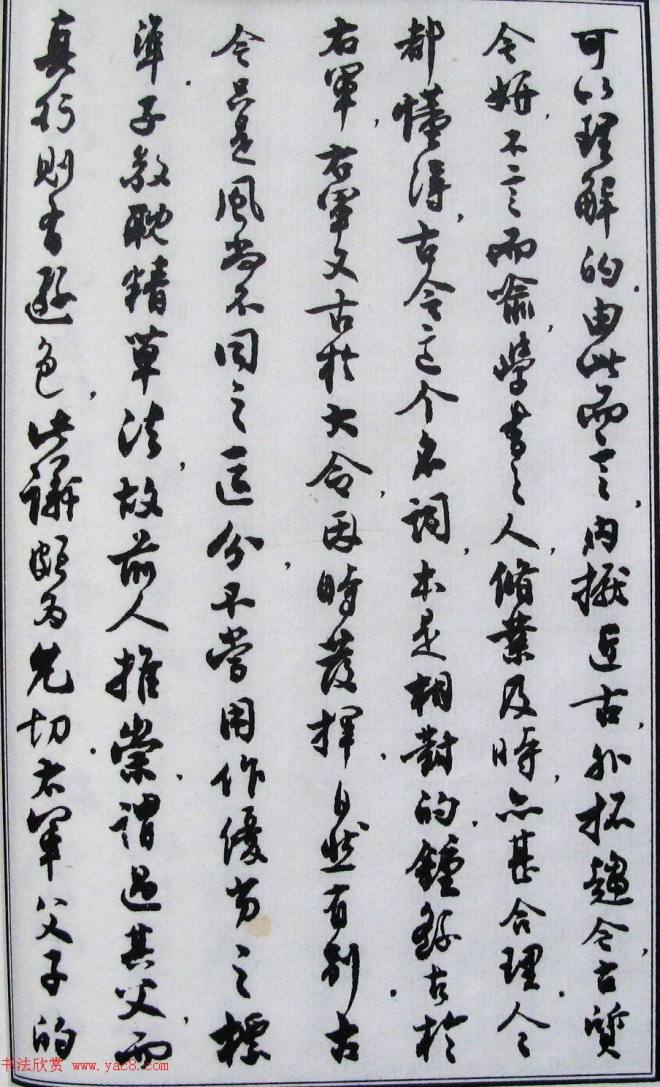 可以理解的。由此而言，内擫近古，外拓趋今，古質
今妍，不言而喻，學書之人，脩業及時，亦甚合理，人人
都懂得。古今這个名詞，本是相對的，鍾繇古於
右軍，右軍又古於大令，因時發揮，自然有别，古
今只是風尚不同之區分，不當用作優劣之標
準。子敬耽精草法，故前人推崇，謂過其父，而
真行則有遜色，此議頗為允切。右軍父子的
书法欣赏 www.yac8.com